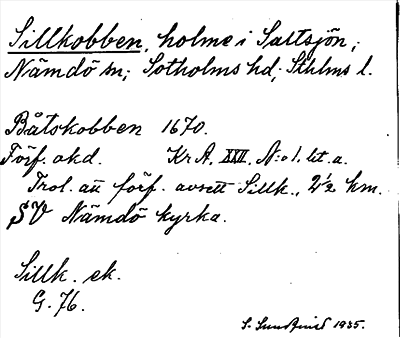 Sillkobben, holme i Saltsjön,
Nämdö sn; Sotholms hd; Sthlms l.
Båtskobben 1670.
Förf. okd. Kr A. XXII. N:o 1. lit. a.
Trol. att förf. avsett Sillk., 2 1/2 km.
SV Nämdö kyrka.
Sillk. ek.
G. 76.
S. Sundqvist 1935.